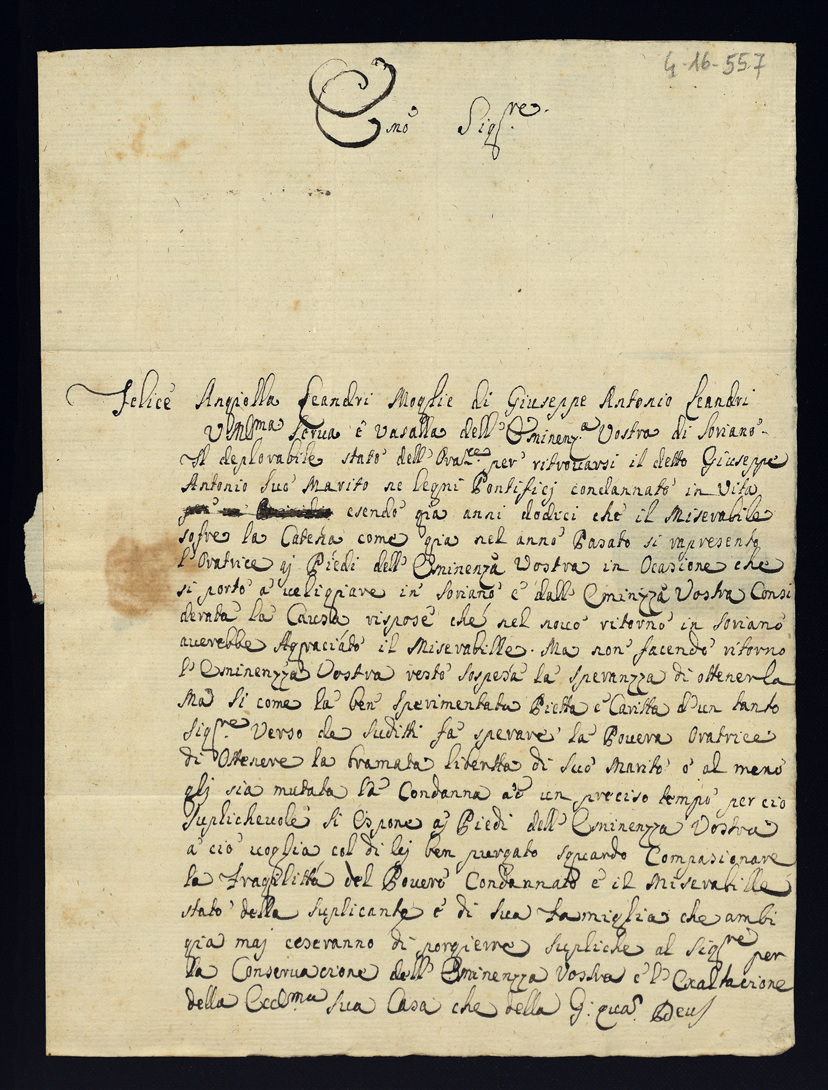 4-16-557
Emo Sigre.
Felice Angiolla Leandri Moglie di Giuseppe Antonio Leandri
Umlma Serva è Vasalla dell' Eminenza Vostra di Soriano
Il deplorabile stato dell' Oratre per ritrovarsi il detto Giuseppe
Antonio suo Marito ne legni Pontificj condannato in Vita
esendo già anni dodici che il Miserabile
sofre la Catena come gia nel anno Pasato si rapresento
l'Oratrice aj Piedi dell' Eminenza Vostra in Ocasione che
si porto a veligiare in Soriano e dall' Eminzza Vostra Consi
derata la Causa rispose che nel novo ritorno in Soriano
averebbe Agraciato il Miserabille. Ma non facendo ritorno
l' Eminenzza Vostra restò sospesa la speranzza di ottenerla
Ma si come la ben sperimentata Pietta e Caritta d'un tanto
Sigre Verso de Suditti fa sperare la Povera Oratrice
di Ottenere la bramata libertta di suo Marito o al meno
glj sia mutata la Condanna a un preciso tempo per cio
Suplichevole si Espone aj Piedi dell' Eminenzza Vostra
a ciò voglia col di lej ben purgato sguardo Compasionare
la Fragilitta del Povero Condannato e il Miserabille
stato della Suplicante e di sua Famiglia che ambi
gia maj ceseranno di porgierre Supliche al Sigre per
la Conservacione dell' Eminenzza Vostra e l' Exaltacione
della Eccelma sua Casa che della G: quas Deus